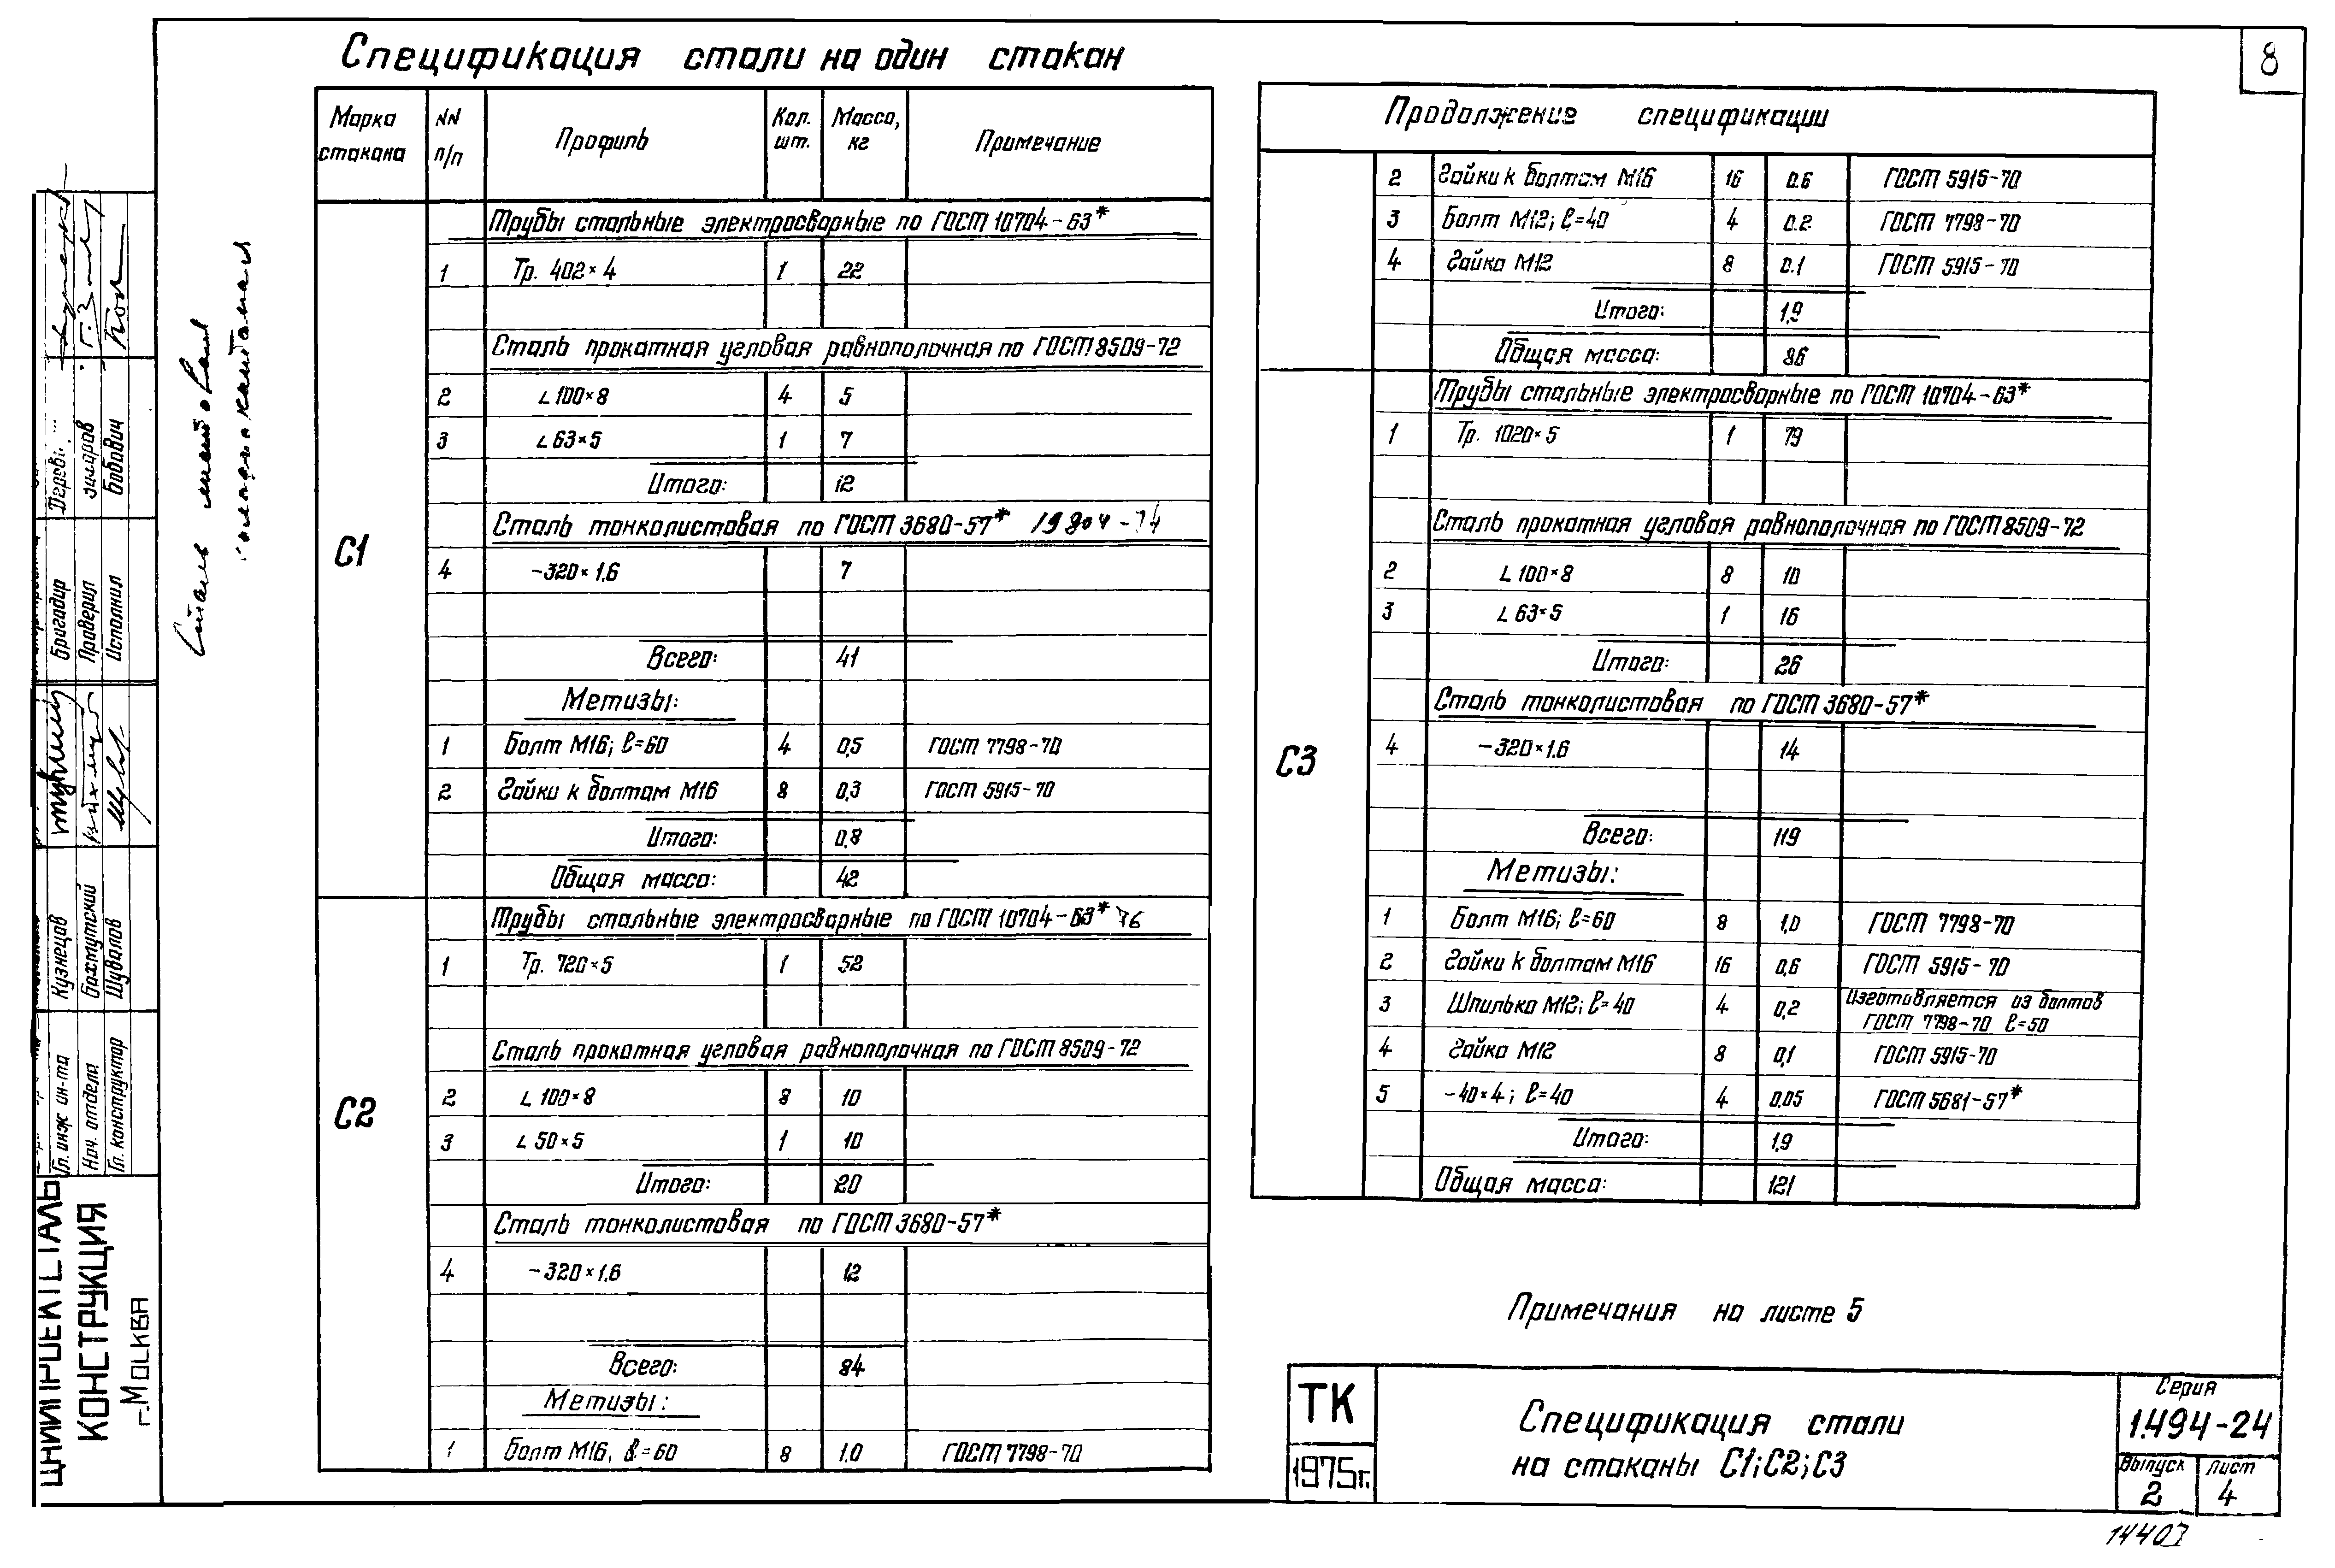 Спецификация стали на один стакан
8
Марка стакана | NN п/п | Профиль | Кол. шт. | Масса, кг | Примечание
С1
Трубы стальные электросварные по ГОСТ 10704-63*
1 Тр. 402×4 1 22
Сталь прокатная угловая равнополочная по ГОСТ 8509-72
2 L 100×8 4 5
3 L 63×5 1 7
Итого: 12
Сталь тонколистовая по ГОСТ 3680-57* 19804-74
4 -320×1,6 7
Всего: 41
Метизы:
1 Болт М16; ℓ=60 4 0,5 ГОСТ 7798-70
2 Гайки к болтам М16 8 0,3 ГОСТ 5915-70
Итого: 0,8
Общая масса: 42
С2
Трубы стальные электросварные по ГОСТ 10704-63* 76
1 Тр. 720×5 1 52
Сталь прокатная угловая равнополочная по ГОСТ 8509-72
2 L 100×8 8 10
3 L 50×5 1 10
Итого: 20
Сталь тонколистовая по ГОСТ 3680-57*
4 -320×1,6 12
Всего: 84
Метизы:
1 Болт М16, ℓ=60 8 1,0 ГОСТ 7798-70
Продолжение спецификации
2 Гайки к болтам М16 16 0.6 ГОСТ 5915-70
3 Болт М12; ℓ=40 4 0.2 ГОСТ 7798-70
4 Гайка М12 8 0.1 ГОСТ 5915-70
Итого: 1,9
Общая масса: 86
С3
Трубы стальные электросварные по ГОСТ 10704-63*
1 Тр. 1020×5 1 79
Сталь прокатная угловая равнополочная по ГОСТ 8509-72
2 L 100×8 8 10
3 L 63×5 1 16
Итого: 26
Сталь тонколистовая по ГОСТ 3680-57*
4 -320×1.6 14
Всего: 119
Метизы:
1 Болт М16; ℓ=60 8 1,0 ГОСТ 7798-70
2 Гайки к болтам М16 16 0,6 ГОСТ 5915-70
3 Шпилька М12; ℓ=40 4 0,2 Изготовляется из болтов
ГОСТ 7798-70 ℓ=50
4 Гайка М12 8 0,1 ГОСТ 5915-70
5 -40×4; ℓ=40 4 0,05 ГОСТ 5681-57*
Итого: 1,9
Общая масса: 121
Примечания на листе 5
ТК
1975г.
Спецификация стали
на стаканы С1; С2; С3
Серия
1.494-24
Выпуск
2
Лист
4
Сталь листовая
Бригадир
Проверил
Исполнил Бобович
Гл. инж ин-та Кузнецов
Нач. отдела Бахмутский
Гл. конструктор Шувалов
КОНСТРУКЦИЯ
г. Москва